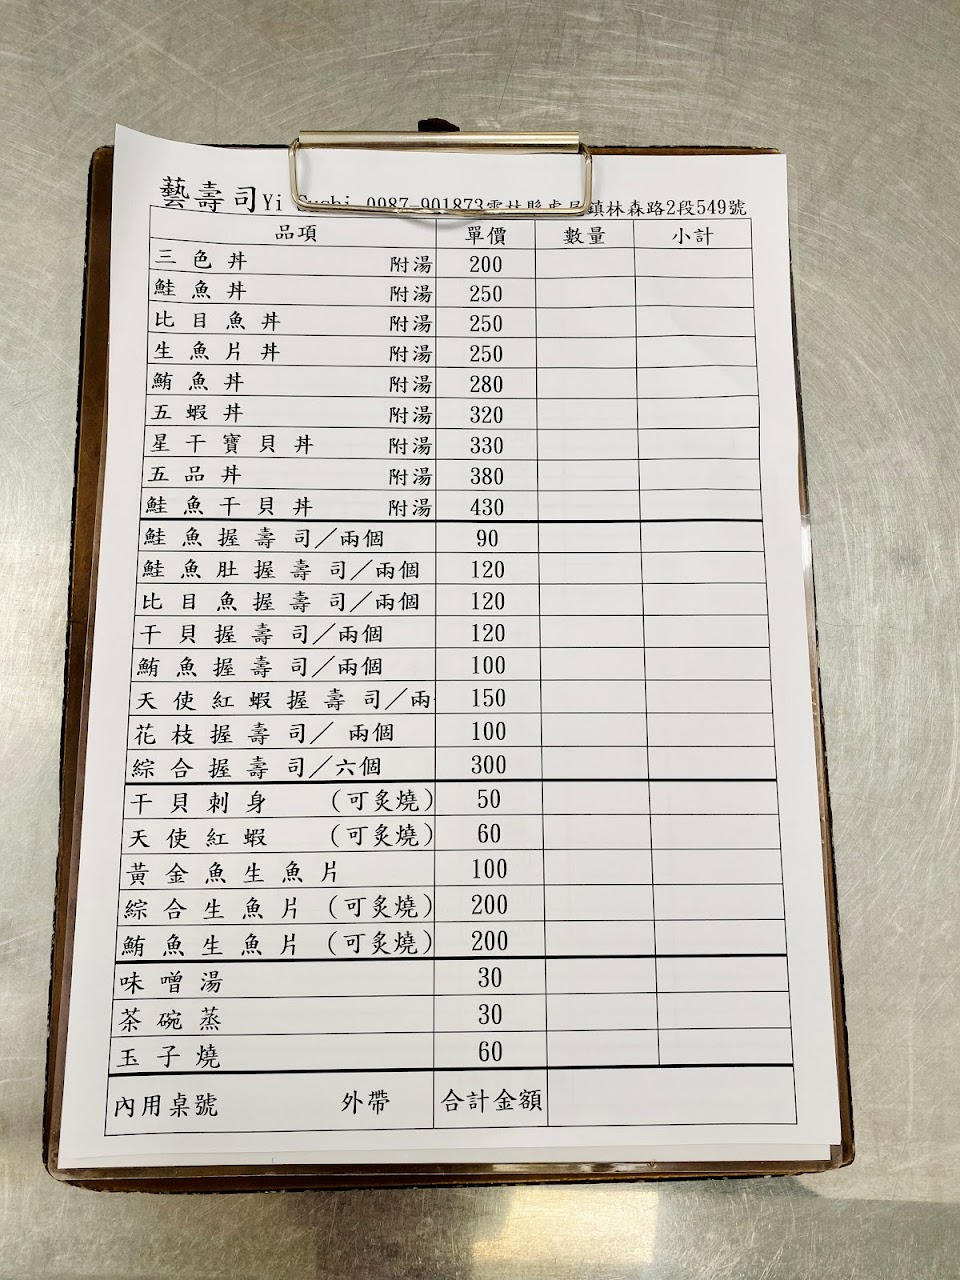 藝壽司Yi Sushi 0987-901873雲林縣虎尾鎮林森路2段549號
品項 單價 數量 小計
三色丼 附湯 200
鮭魚丼 附湯 250
比目魚丼 附湯 250
生魚片丼 附湯 250
鮪魚丼 附湯 280
五蝦丼 附湯 320
星干寶貝丼 附湯 330
五品丼 附湯 380
鮭魚干貝丼 附湯 430
鮭魚握壽司/兩個 90
鮭魚肚握壽司/兩個 120
比目魚握壽司/兩個 120
干貝握壽司/兩個 120
鮪魚握壽司/兩個 100
天使紅蝦握壽司/兩 150
花枝握壽司/ 兩個 100
綜合握壽司/六個 300
干貝刺身 (可炙燒) 50
天使紅蝦 (可炙燒) 60
黃金魚生魚片 100
綜合生魚片 (可炙燒) 200
鮪魚生魚片 (可炙燒) 200
味噌湯 30
茶碗蒸 30
玉子燒 60
內用桌號 外帶 合計金額